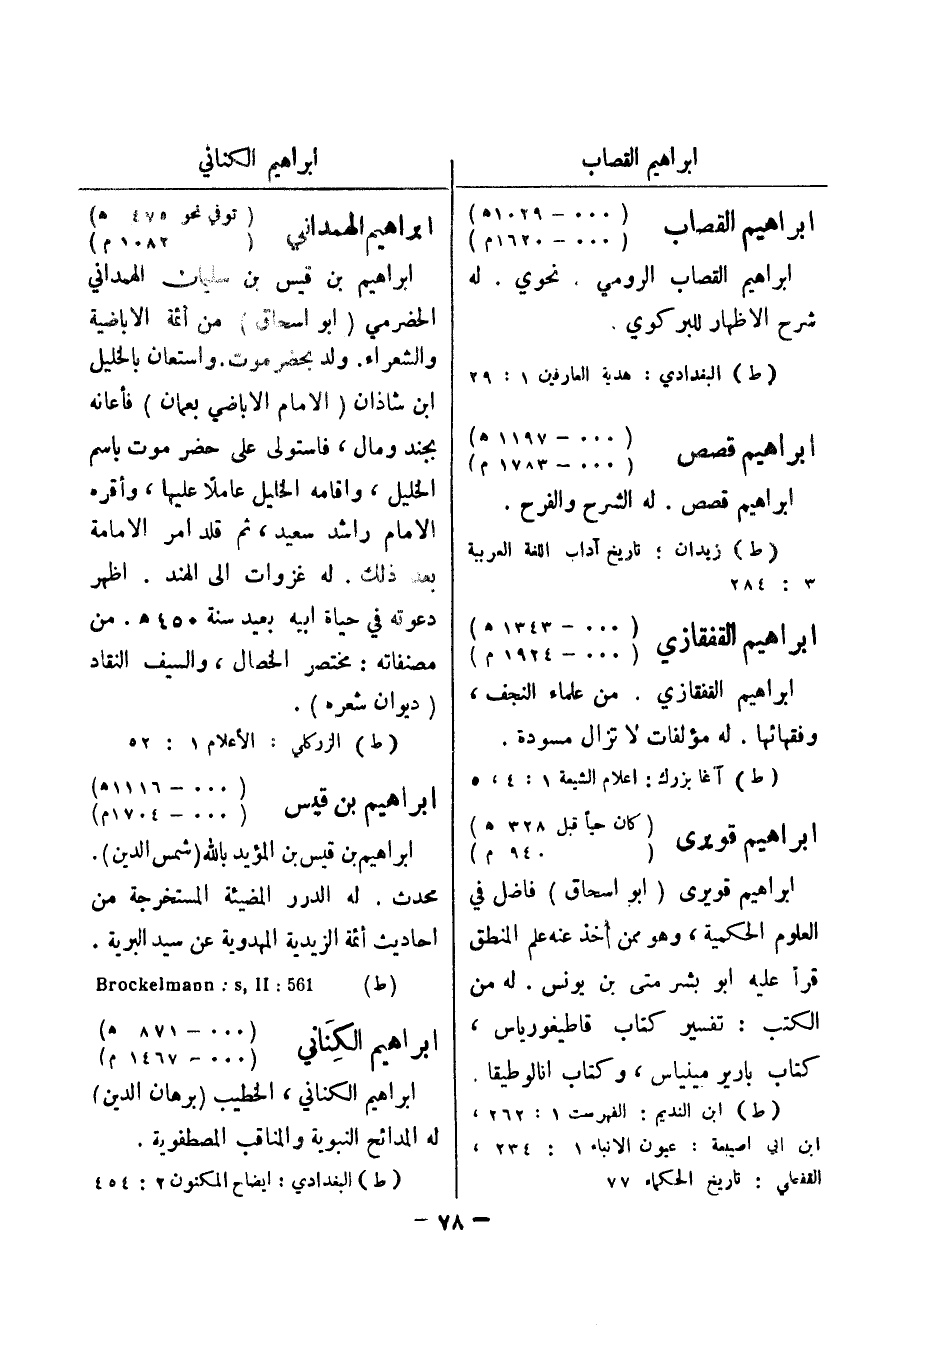 ابراهيم القصاب
ابراهيم القصاب ( ٠٠٠ – ١٠٢٩ه )
( ٠٠٠ – ١٦٢٠م )
ابراهيم القصاب الرومي . نحوي . له
شرح الاظهار للبركوي .
( ط ) البغدادي : هدية العارفين ١ : ٢٩
ابراهيم قصص ( ٠٠٠ – ١١٩٧ ه )
( ٠٠٠ – ١٧٨٣ م )
ابراهيم قصص . له الشرح والفرح .
( ط ) زيدان : تاريخ آداب اللغة العربية
٣ : ٢٨٤
ابراهيم القفقازي ( ٠٠٠ – ١٣٤٣ ه )
( ٠٠٠ – ١٩٢٤ م )
ابراهيم القفقازي . من علماء النجف ،
وفقهائها . له مؤلفات لا تزال مسودة .
( ط ) آغا بزرك : اعلام الشيعة ١ : ٤ ، ٥
ابراهيم قويرى ( كان حياً قبل ٣٢٨ ه )
( ٩٤٠ م )
ابراهيم قويرى ( ابو اسحاق ) فاضل في
العلوم الحكمية ، وهو ممن أخذ عنه علم المنطق
قرأ عليه ابو بشر متى بن يونس . له من
الكتب : تفسير كتاب قاطيغورياس ،
كتاب باريرمينياس ، وكتاب انالوطيقا .
( ط ) ابن النديم : الفهرست ١ : ٢٦٢ ،
ابن ابي اصيبعة : عيون الانباء ١ : ٢٣٤ ،
القفطي : تاريخ الحكماء ٧٧
ابراهيم الكناني
ابراهيم الهمداني ( توفي نحو ٤٧٥ ه )
( ١٠٨٢ م )
ابراهيم بن قيس بن سليمان الهمداني
الحضرمي ( ابو اسحاق ) من أئمة الاباضية
والشعراء. ولد بحضرموت. واستعان بالخليل
ابن شاذان ( الامام الاباضي بعمان ) فأعانه
بجند ومال ، فاستولى على حضر موت باسم
الخليل ، واقامه الخليل عاملاً عليها ، وأقره
الامام راشد سعيد ، ثم قلد امر الامامة
بعد ذلك . له غزوات الى الهند . اظهر
دعوته في حياة ابيه بعيد سنة ٤٥٠ ه . من
مصنفاته : مختصر الخصال ، والسيف النقاد
( ديوان شعره ) .
( ط ) الزركلي : الأعلام ١ : ٥٢
ابراهيم بن قيس ( ٠٠٠ – ١١١٦ه )
( ٠٠٠ – ١٧٠٤م )
ابراهيم بن قيس بن المؤيد بالله (شمس الدين).
محدث . له الدرر المضيئة المستخرجة من
احاديث أئمة الزيدية المهدوية عن سيد البرية .
(ط) Brockelmann : s, II : 561
ابراهيم الكِنَاني ( ٠٠٠ – ٨٧١ ه )
( ٠٠٠ – ١٤٦٧ م )
ابراهيم الكناني ، الخطيب (برهان الدين)
له المدائح النبوية والمناقب المصطفوية .
( ط ) البغدادي : ايضاح المكنون ٢ : ٤٥٤
– ٧٨ –